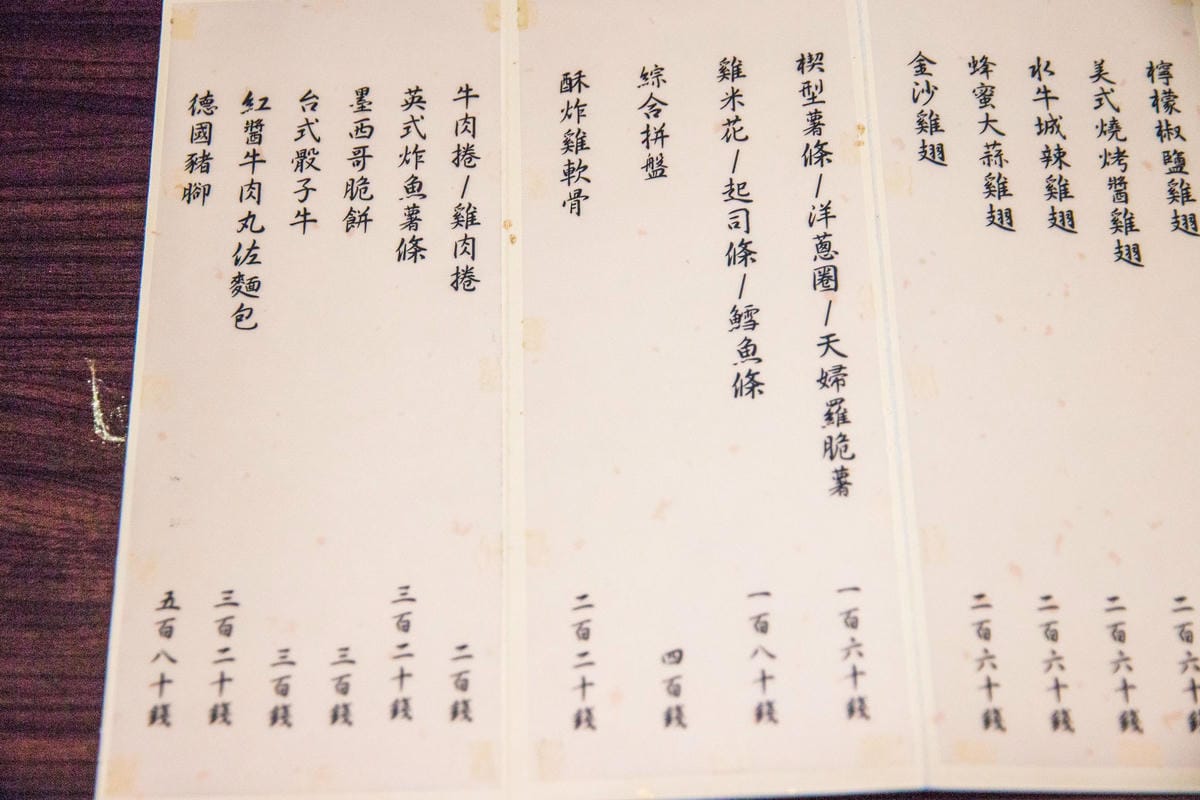 檸檬椒鹽雞翅
美式燒烤醬雞翅 二百六十錢
水牛城辣雞翅 二百六十錢
蜂蜜大蒜雞翅 二百六十錢
金沙雞翅 二百六十錢
楔型薯條/洋蔥圈/天婦羅脆薯 一百六十錢
雞米花/起司條/鱈魚條 一百八十錢
綜合拼盤 四百錢
酥炸雞軟骨 二百二十錢
牛肉捲/雞肉捲 二百錢
英式炸魚薯條 三百二十錢
墨西哥脆餅 三百錢
台式骰子牛 三百錢
紅醬牛肉丸佐麵包 三百二十錢
德國豬腳 五百八十錢